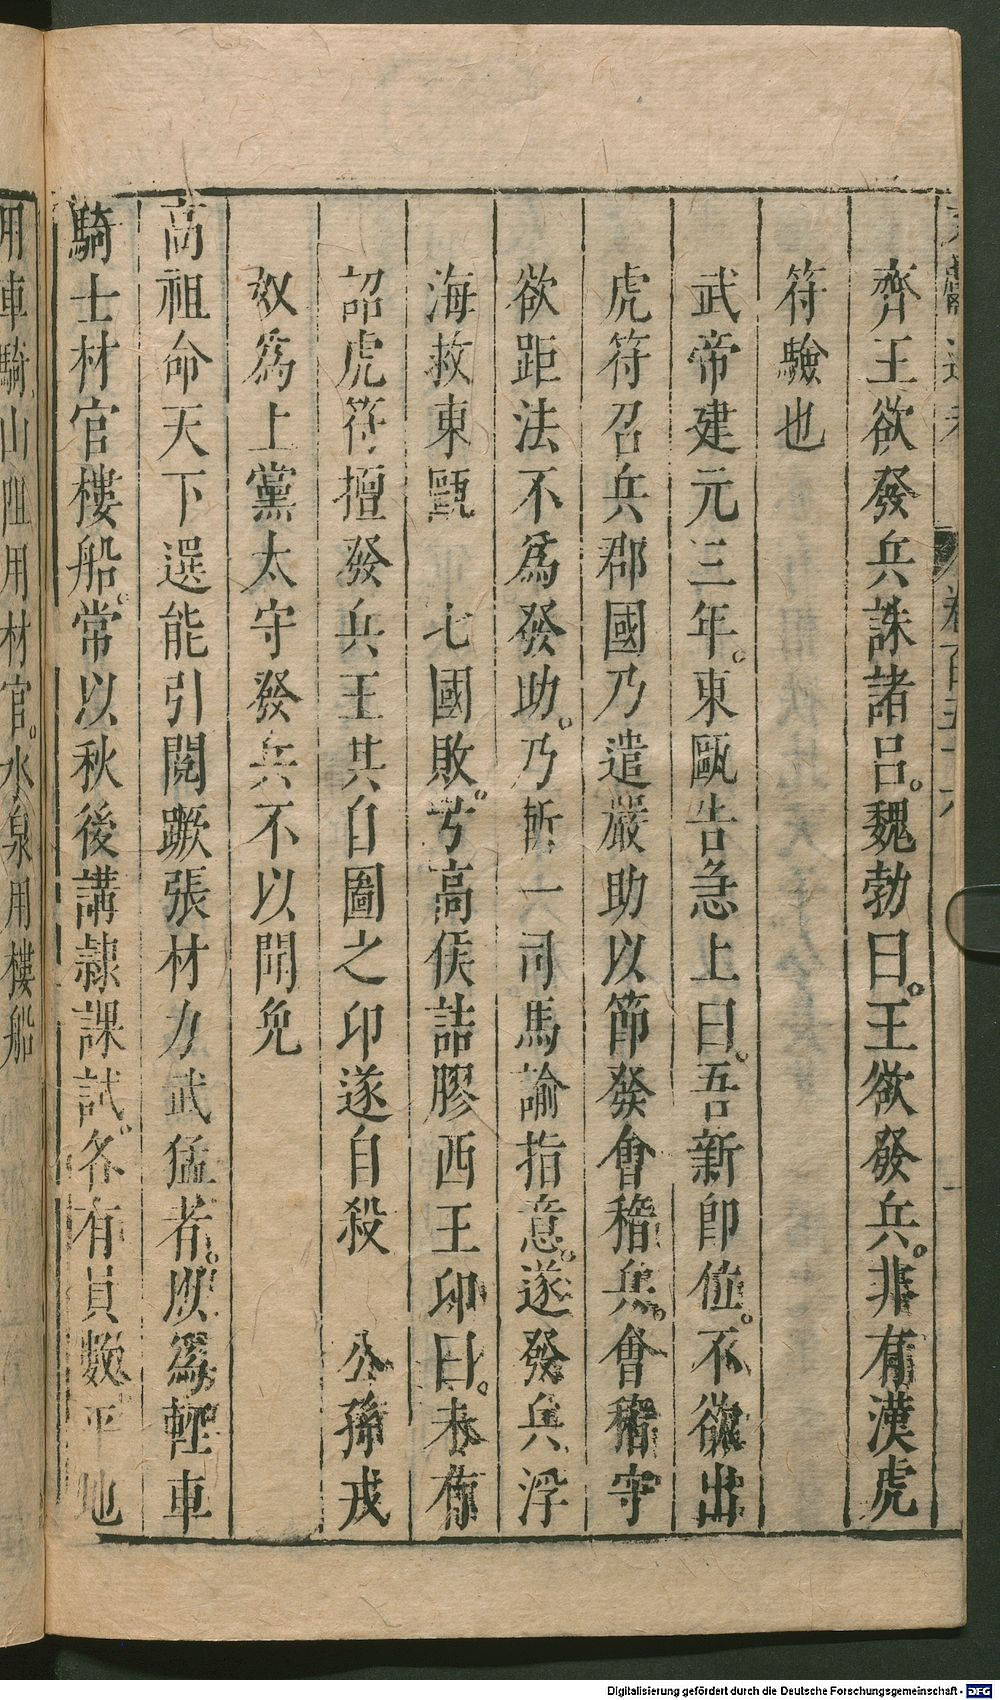 齊王欲發兵誅諸呂。魏勃曰。王欲發兵。非有漢虎
符驗也
武帝建元三年。東甌告急上曰。吾新卽位。不欲出
虎符召兵郡國乃遣嚴助以節發會稽兵。會稽守
欲距法不爲發助。乃斬一司馬諭指意。遂發兵浮
海救東甌 七國敗。弓高侯詰膠西王卬曰。未有
詔虎符擅發兵王其自圖之卬遂自殺 公孫戎
奴爲上黨太守發兵不以聞免
高祖命天下選能引關蹶張材力武猛者。以爲輕車
騎士材官樓船。常以秋後講隸課試。各有員數。平地
用車騎山阻用材官。水泉用樓船
Digitalisierung gefördert durch die Deutsche Forschungsgemeinschaft - DFG